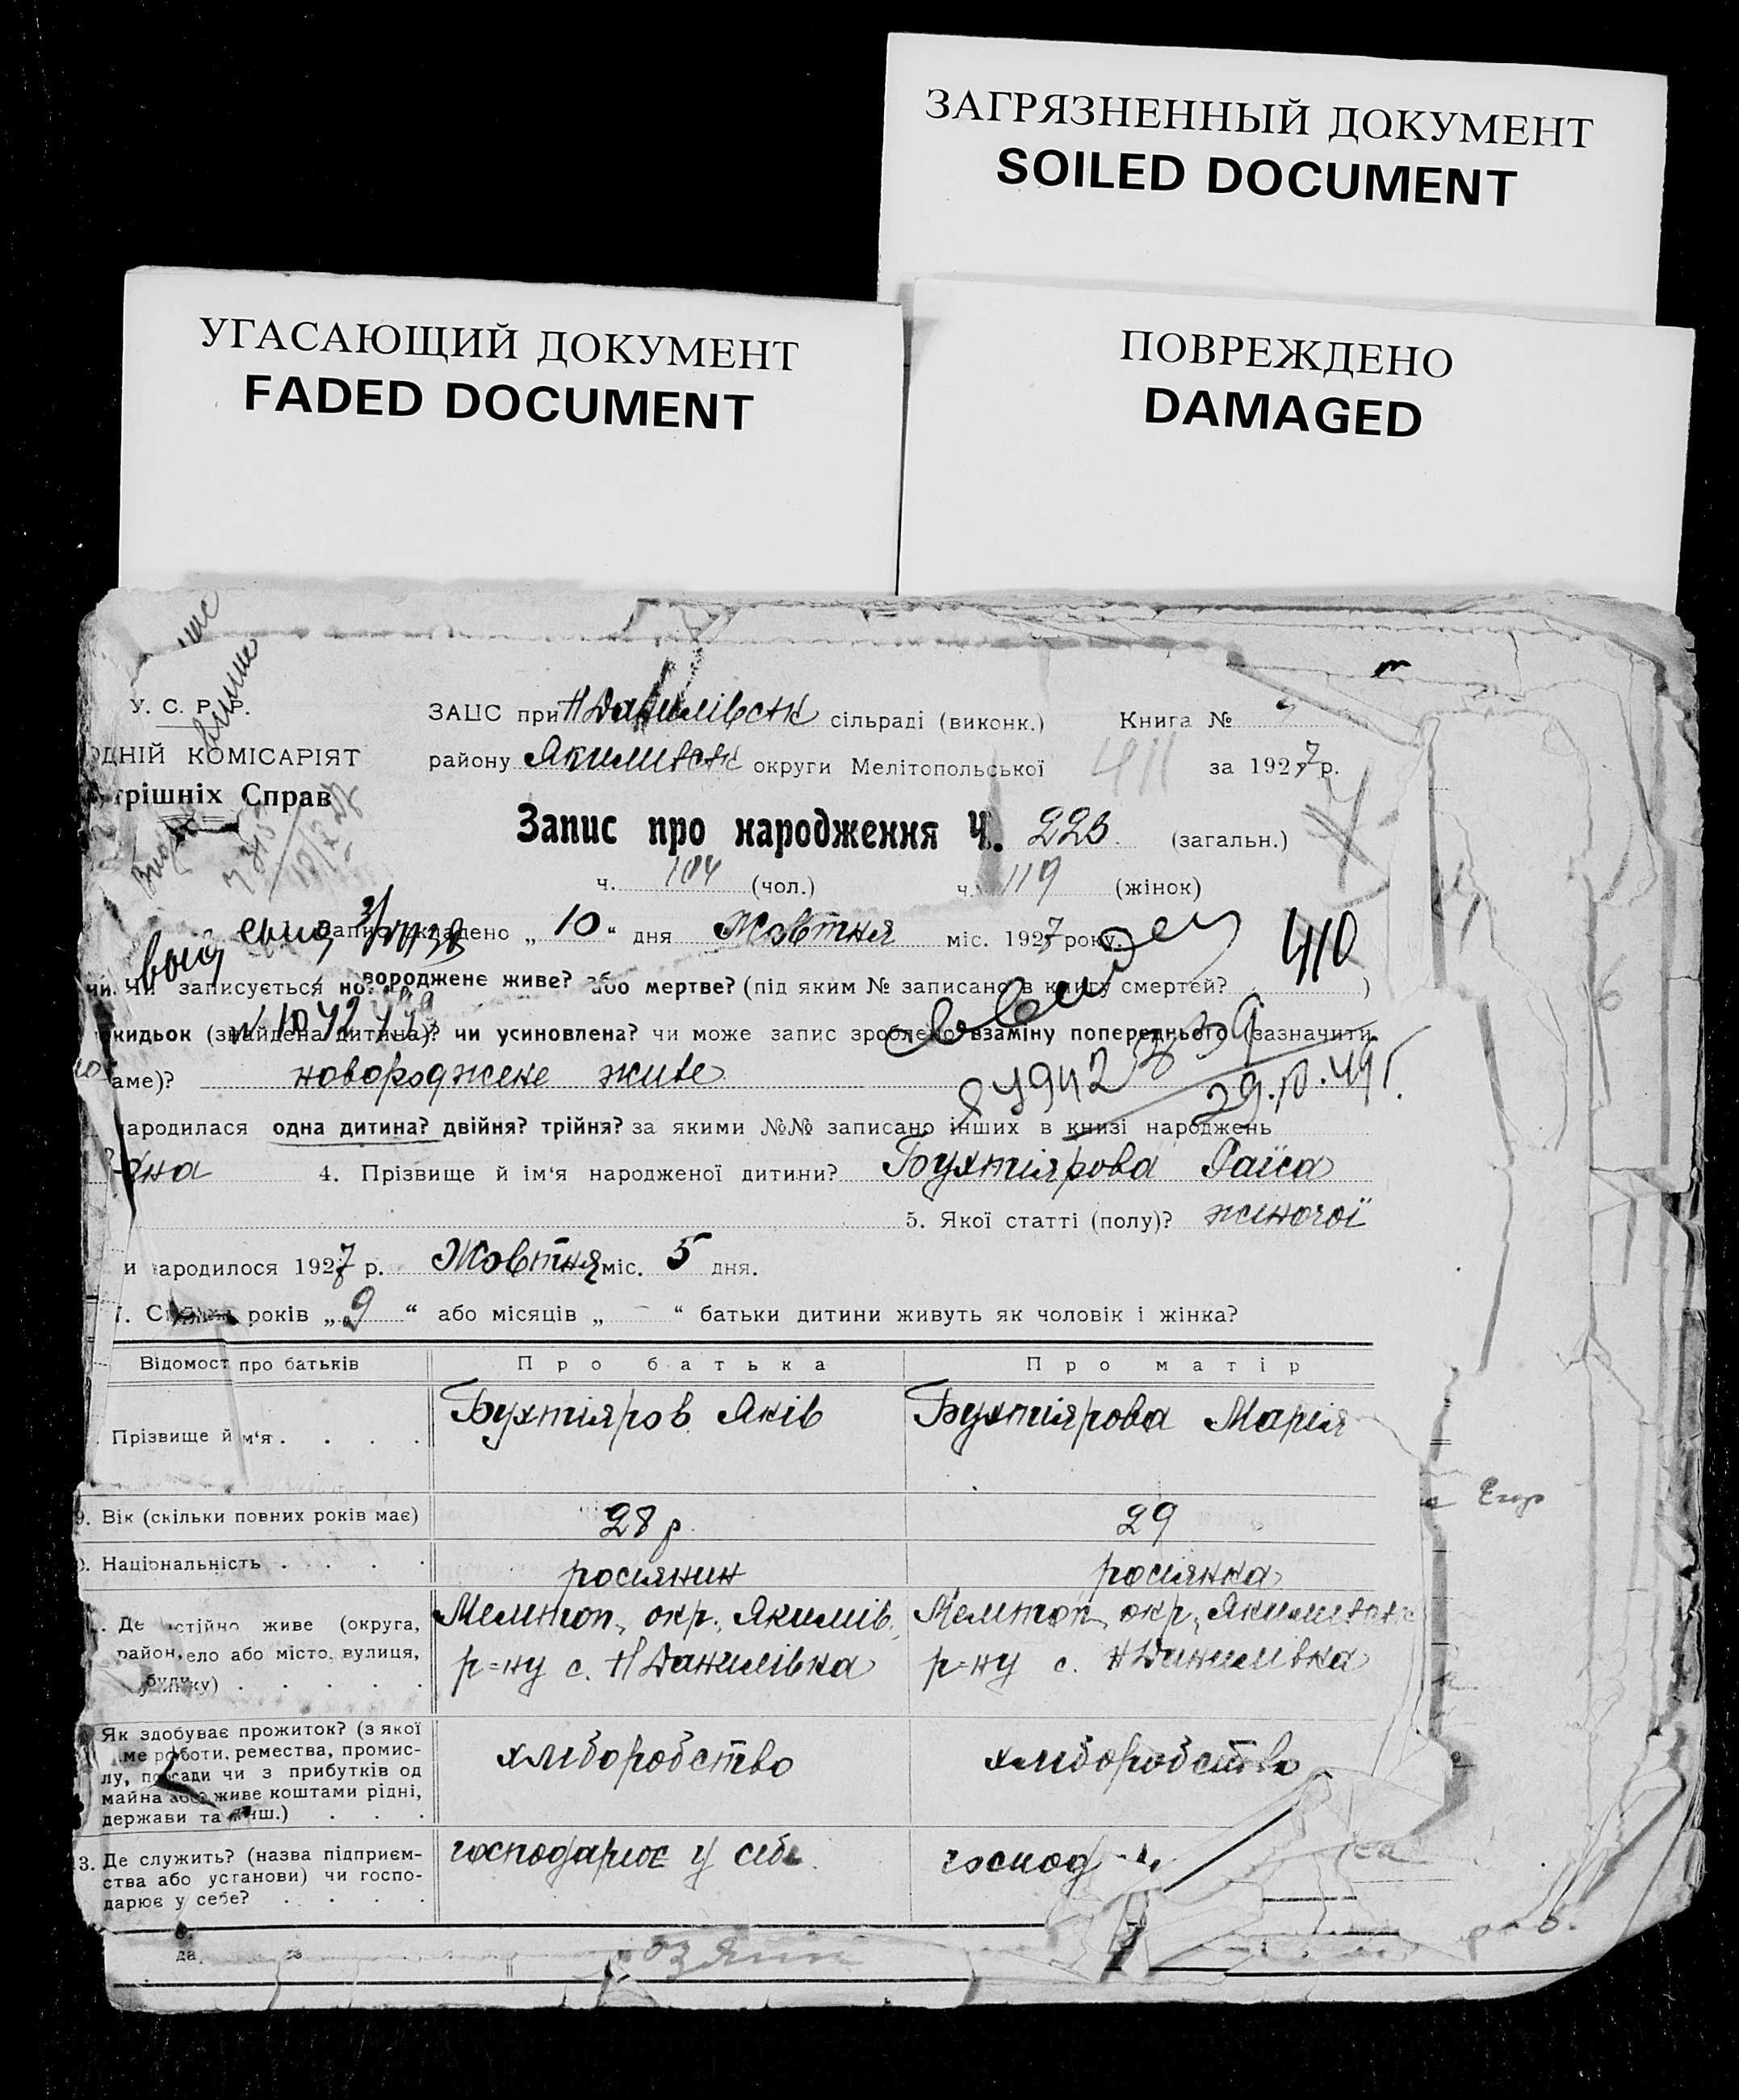 ЗАГРЯЗНЕННЫЙ ДОКУМЕНТ
SOILED DOCUMENT
УГАСАЮЩИЙ ДОКУМЕНТ
FADED DOCUMENT
ПОВРЕЖДЕНО
DAMAGED
У. С. Р. Р.
ОДНІЙ КОМІСАРІЯТ
трішніх Справ
ЗАЦС при Н Данилівськ сільраді (виконк.) Книга №
району Якимівськ округи Мелітопольської 411 за 1927 р.
Запис про народження Ч. 223 (загальн.)
ч. 104 (чол.) ч. 119 (жінок)
складено „ 10 “ дня Жовтня міс. 1927 року. 410
Чи записується новороджене живе? або мертве? (під яким № записано в книгу смертей? )
кидьок (знайдена дитина)? чи усиновлена? чи може запис зроблено взаміну попереднього (зазначити
аме)? новороджене живе
29.10.49
ародилася одна дитина? двійня? трійня? за якими №№ записано інших в книзі народжень
дна 4. Прізвище й ім‘я народженої дитини? Бухтіярова Раїса
5. Якої статті (полу)? жіночої
и ародилося 1927 р. Жовтня міс. 5 дня.
7. років „ 9 “ або місяців „ – “ батьки дитини живуть як чоловік і жінка?
Відомост про батьків Про батька Про матір
Прізвище й м‘я Бухтіяров Яків Бухтіярова Марія
9. Вік (скільки повних років має) 28 р. 29
Національність росіянин росіянка
Де стійно живе (округа, Мелітоп. окр., Якимів. Мелітоп. окр., Якимівськ
район, ело або місто, вулиця, р=ну с. Н Данилівка р=ну с. Н Данилівка
Як здобуває прожиток? (з якої
ме роботи, ремества, промис-
лу, посади чи з прибутків од хліборобство хліборобство
майна або живе коштами рідні,
держави та инш.)
3. Де служить? (назва підприєм- господарює у себе господ
ства або установи) чи госпо-
дарює у себе?